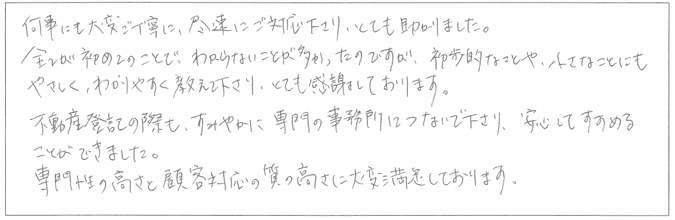 何事にも大変ご丁寧に、尽速にご対応下さり、とても助かりました。
全てが初めてのことで、わからないことが多かったのですが、初歩的なことや、小さなことにも
やさしく、わかりやすく教えて下さり、とても感謝しております。
不動産登記の際も、すみやかに専門の事務所につないで下さり、安心してすすめる
ことができました。
専門性の高さと顧客対応の質の高さに大変満足しております。